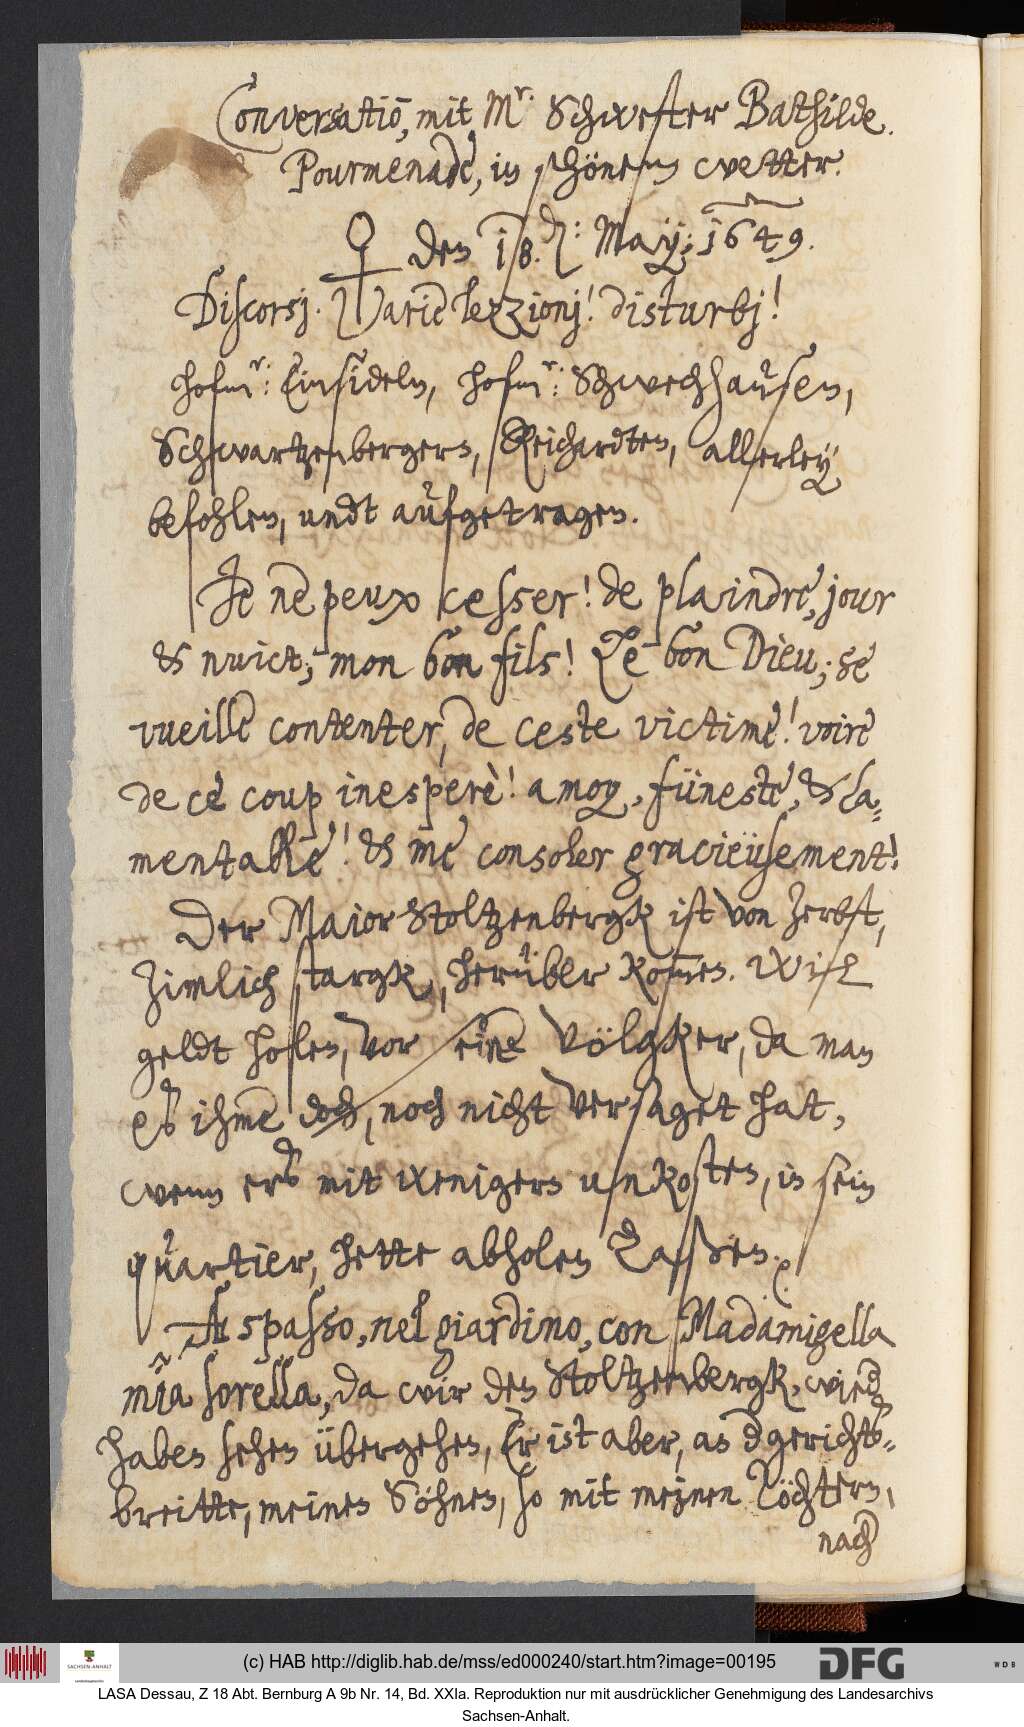 Conversatiō, mit Mr. Schwester Bathilde.
Pourmenade, in schönem wetter.
♀ den 18. May; 1649.
Discorsj. Varie lezzionj! disturbj!
hofmr: Einsideln, hofmr: Schwechhausen,
Schwartzenbergern, Reichardten, allerley
befohlen, undt aufgetragen.
Je ne peux cesser! de plaindre, jour
& nuict; mon bon fils! Le bon Dieu; se
vueille contenter, de ceste victime! voire
de ce coup inesperè! a moy, füneste, & la-
mentable! & me consoler gracieüsement!
Der Maior Stoltzenbergk ist von Zerbst,
Zimlich stargk, herüber kom̄en. Will
geldt holen, vor seine Völgker, da man
es ihme doch, noch nicht versaget hat,
wenn ers mit wenigern unkosten, in sein
quartier, hette abholen Laßen.
A spasso, nel giardino, con Madamigella
mia sorella, da wir den Stoltzenbergk, wied
haben sehen übergehen, Er ist aber, an d gerichts-
breitte, meinen Söhnen, so mit meinen Töchtern,
nach
(c) HAB http://diglib.hab.de/mss/ed000240/start.htm?image=00195
SACHSEN-ANHALT
DFG
WDB
LASA Dessau, Z 18 Abt. Bernburg A 9b Nr. 14, Bd. XXIa. Reproduktion nur mit ausdrücklicher Genehmigung des Landesarchivs
Sachsen-Anhalt.